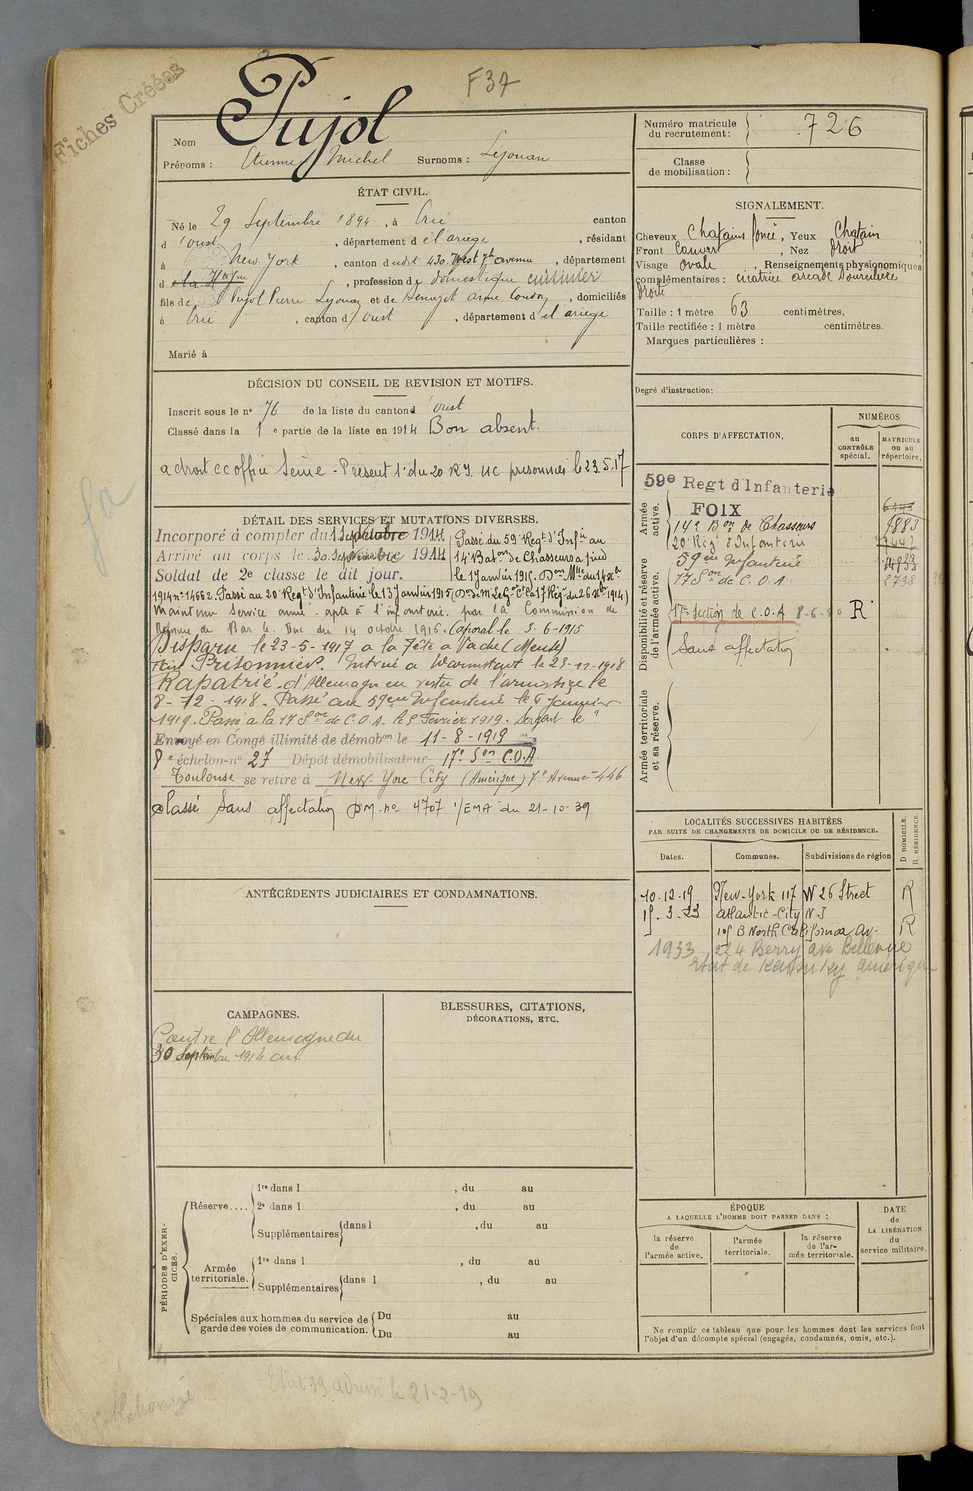 Fiches Créées
F37
Nom Pujol
Prénoms : Etienne Michel Surnoms : Lejouan
Numéro matricule du recrutement : 726
Classe de mobilisation :
ÉTAT CIVIL.
Né le 29 Septembre 1894, à Ercé canton
d'oust, département de l'ariège, résidant
à New York, canton dudit 430 West 7th avenue, département
d, profession de domestique cuisinier
fils de Pujol Pierre Lejouan et de, domiciliés
à Ercé, canton d'oust, département de l'ariège
Marié à
SIGNALEMENT.
Cheveux Chatains foncé, Yeux Chatain
Front Couvert, Nez droit
Visage ovale, Renseignements physionomiques
complémentaires : cicatrice arcade Sourcilière
droite
Taille : 1 mètre 63 centimètres.
Taille rectifiée : 1 mètre centimètres.
Marques particulières :
Degré d'instruction :
DÉCISION DU CONSEIL DE REVISION ET MOTIFS.
Inscrit sous le nº 76 de la liste du canton d'oust
Classé dans la 1e partie de la liste en 1914 Bon absent.
a droit cc office Seine - Présent 1. du 20 R.I. UC prisonnier le 23.5.17
DÉTAIL DES SERVICES ET MUTATIONS DIVERSES.
Incorporé à compter du 1914
Arrivé au corps le 30 1914
Soldat de 2e classe le dit jour.
Passé du 59e Regt d'Infie au
14e Baton de Chasseurs a pied
le 1 janvier 1915.
1914 nº 14662 Passé au 20e Regt d'Infanterie le 13 Janvier 1915
Maintenu Service armé apte à l'infanterie par la Commission de
Réforme de Bar le Duc du 14 octobre 1915. Caporal le 3-6-1915
Disparu le 23-5-1917 a la Tête a Vache (Meuse)
Prisonnier. Interné a le 23-11-1918
Rapatrié d'Allemagne en vertu de l'armistice le
8-12-1918. Passé au 59eme Infanterie le 5 Janvier
1919. Passé a la 17e Son de C.O.A. le 5 Février 1919. Sergent le ?
Envoyé en Congé illimité de démobon le 11-8-1919
8e échelon nº 27 Dépôt démobilisateur 17e Son C.O.A.
Toulouse se retire à New York City (Amérique) 7e Avenue 446
Classé Sans affectation DM. nº 4707 1/EMA du 21-10-39
CORPS D'AFFECTATION.
NUMÉROS
au CONTRÔLE spécial.
MATRICULE ou au répertoire.
Armée active.
59e Regt d'Infanterie
FOIX
14e Bon de Chasseurs
20e Regt d'Infanterie
59eme Infanterie
17e Son de C.O.A
9883
2738
Disponibilité et réserve de l'armée active.
17e Section de C.O.A 8-6- R
Sans affectation
Armée territoriale et sa réserve.
LOCALITÉS SUCCESSIVES HABITÉES
PAR SUITE DE CHANGEMENTS DE DOMICILE OU DE RÉSIDENCE.
Dates. Communes. Subdivisions de région D DOMICILE. R RÉSIDENCE.
10-12-19 New-York 117 W 26 Street R
15-3-23 Atlantic-City N-J
105 B North California Av- R
1933 224 Berry ave Bellevue
état de Kentuky Amérique
ANTÉCÉDENTS JUDICIAIRES ET CONDAMNATIONS.
CAMPAGNES.
Contre l'Allemagne du
30 Septembre 1914 au
BLESSURES, CITATIONS,
DÉCORATIONS, ETC.
PÉRIODES D'EXERCICES.
Réserve....
1re dans l , du au
2e dans l , du au
Supplémentaires dans l , du au
Armée territoriale.
1re dans l , du au
Supplémentaires dans l , du au
Spéciales aux hommes du service de garde des voies de communication.
Du au
Du au
ÉPOQUE
A LAQUELLE L'HOMME DOIT PASSER DANS :
la réserve de l'armée active.
l'armée territoriale.
la réserve de l'armée territoriale.
DATE de LA LIBÉRATION du service militaire.
Ne remplir ce tableau que pour les hommes dont les services font
l'objet d'un décompte spécial (engagés, condamnés, omis, etc.).